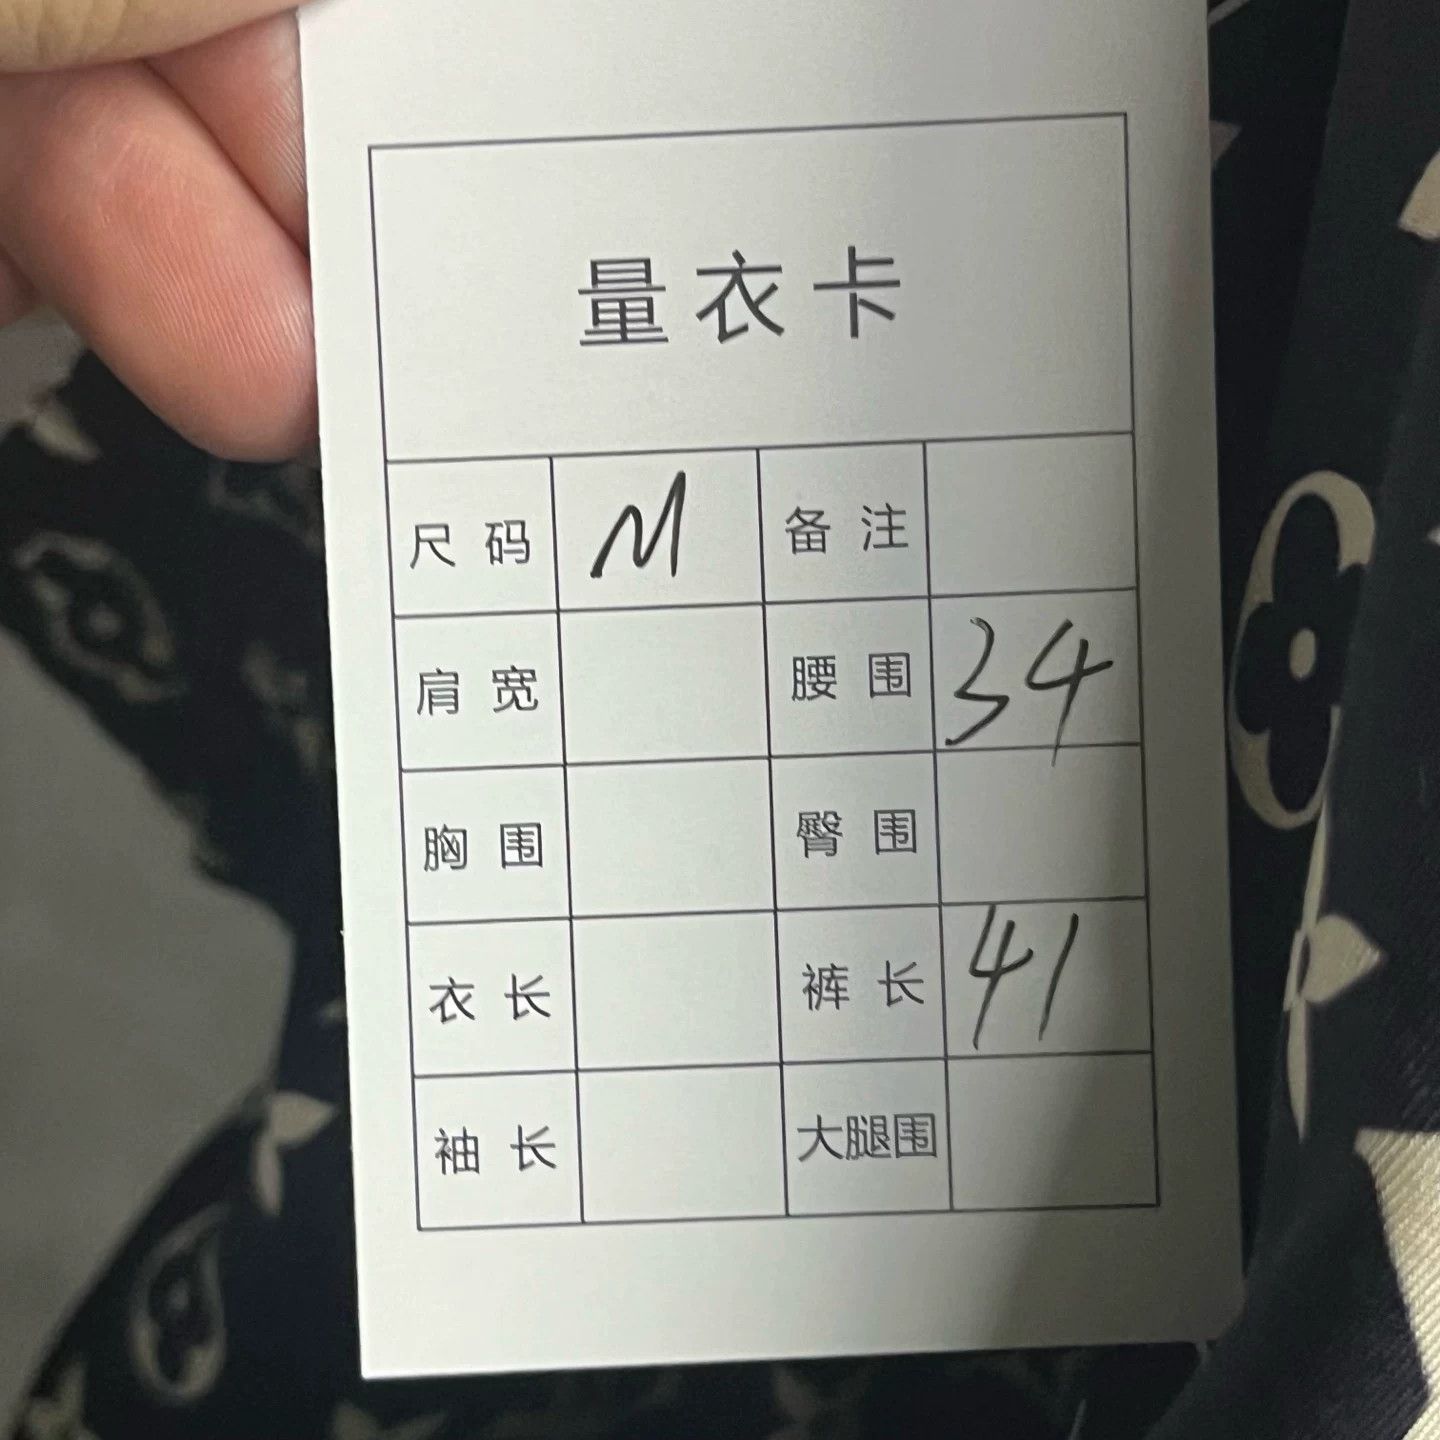 量衣卡
尺码 M 备注
肩宽 腰围 34
胸围 臀围
衣长 裤长 41
袖长 大腿围